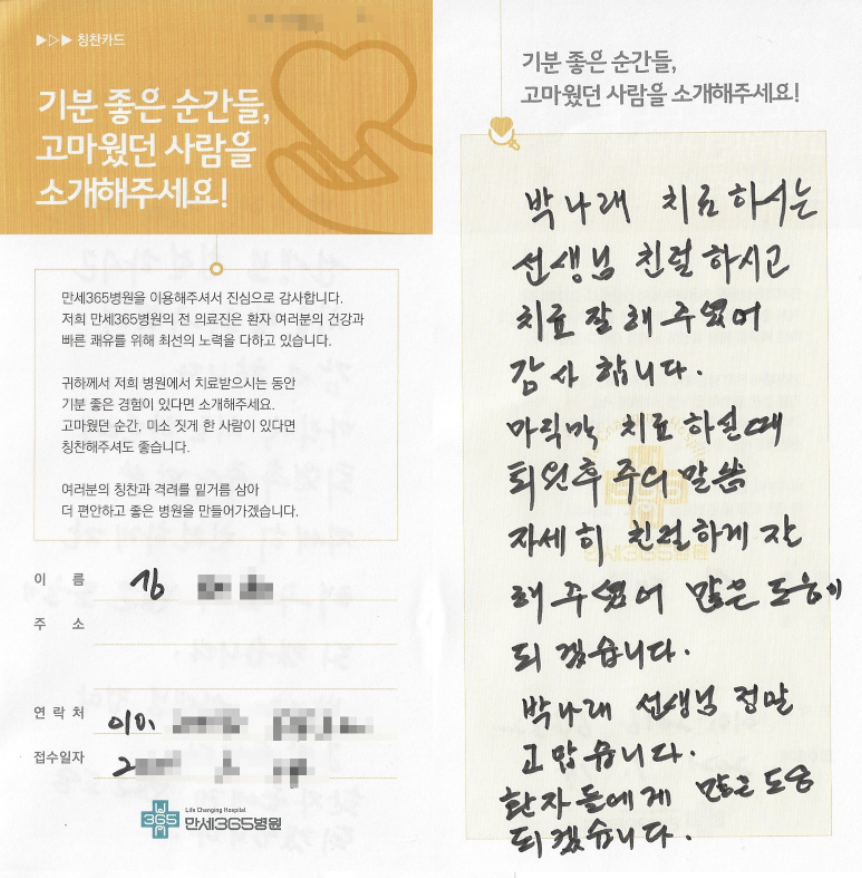 ▶▷▶ 칭찬카드
기분 좋은 순간들,
고마웠던 사람을
소개해주세요!
만세365병원을 이용해주셔서 진심으로 감사합니다.
저희 만세365병원의 전 의료진은 환자 여러분의 건강과
빠른 쾌유를 위해 최선의 노력을 다하고 있습니다.
귀하께서 저희 병원에서 치료받으시는 동안
기분 좋은 경험이 있다면 소개해주세요.
고마웠던 순간, 미소 짓게 한 사람이 있다면
칭찬해주셔도 좋습니다.
여러분의 칭찬과 격려를 밑거름 삼아
더 편안하고 좋은 병원을 만들어가겠습니다.
이 름 김
주 소
연 락 처 010
접수일자 2
WE 365
Life Changing Hospital
만세365병원
기분 좋은 순간들,
고마웠던 사람을 소개해주세요!
박나래 치료 하시는
선생님 친절 하시고
치료 잘 해 주셨어
감사 합니다.
마직막 치료 하실때
퇴원후 주의 말씀
자세히 친절하게 잘
해 주셨어 많은 도움이
되겠습니다.
박나래 선생님 정말
고맙습니다.
환자들에게 많은 도움
되겠습니다.